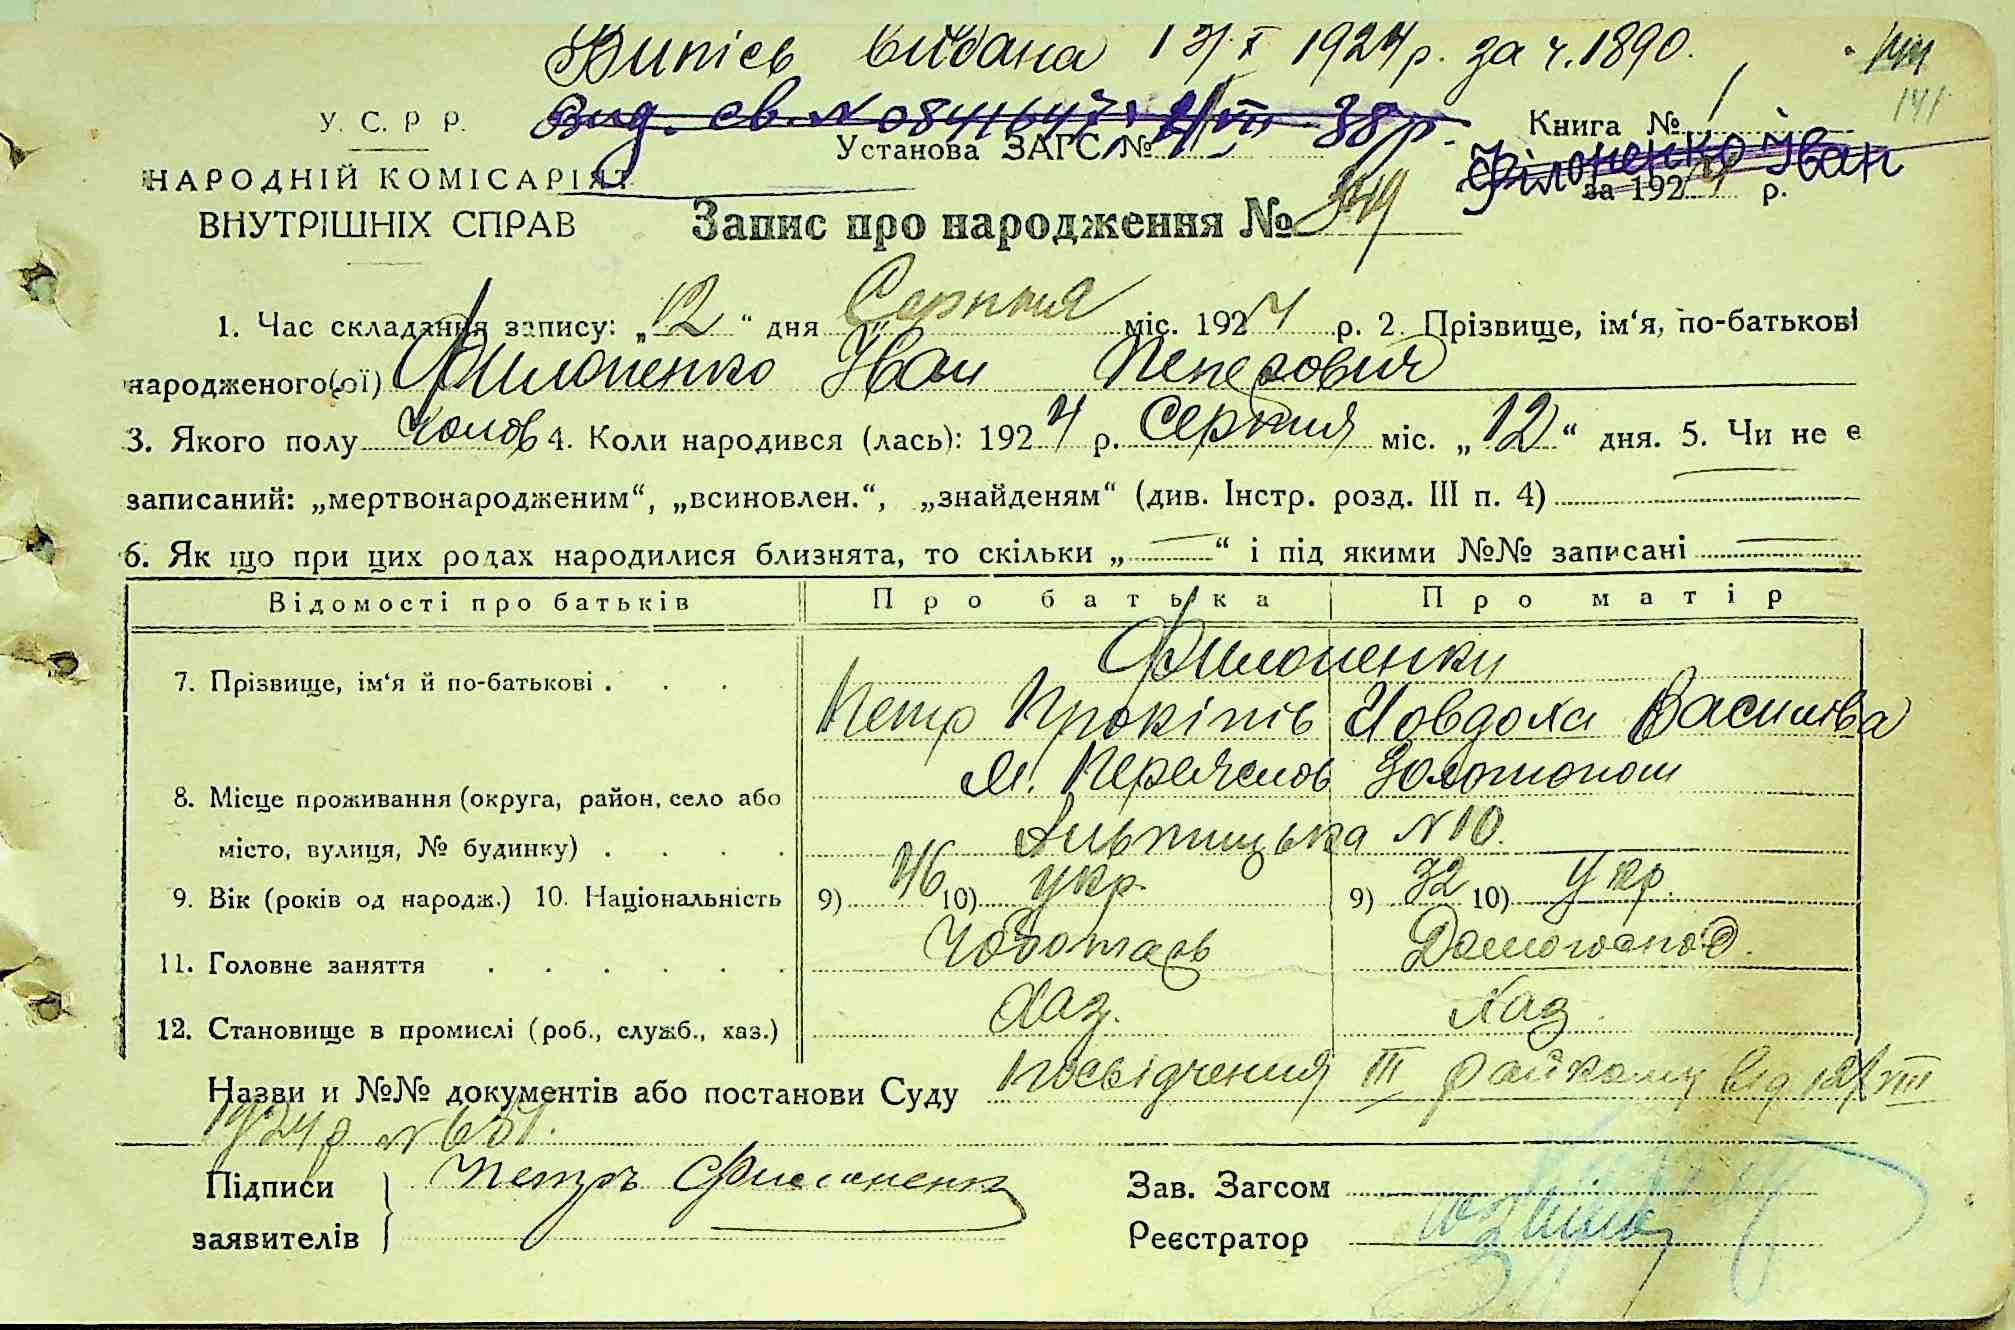 Випісь видана 13/X 1924 р. за ч. 1890.
141
У. С. Р. Р.
Вид. св. N 0841647
38 р.
Книга № 1
Установа ЗАГС №
Філоненко Іван
НАРОДНІЙ КОМІСАРІЯТ
за 1924 р.
ВНУТРІШНІХ СПРАВ
Запис про народження № 349
1. Час складання запису: „12“ дня Серпня міс. 1924 р. 2. Прізвище, ім‘я, по-батькові
народженого(ої) Филоненко Іван Петрович
3. Якого полу Чолов 4. Коли народився (лась): 1924 р. Серпня міс. „12“ дня. 5. Чи не є
записаний: „мертвонародженим“, „всиновлен.“, „знайденям“ (див. Інстр. розд. III п. 4)
6. Як що при цих родах народилися близнята, то скільки „—“ і під якими №№ записані —
Відомості про батьків Про батька Про матір
Филоненки
7. Прізвище, ім‘я й по-батькові . . . Петр Прокіпів Човдоха Василіва
8. Місце проживання (округа, район, село або м. Переяслов Золотонош
місто, вулиця, № будинку) . . . . Альтицька N 10.
9. Вік (років од народж.) 10. Національність 9) 46 10) укр. 9) 32 10) Укр.
11. Головне заняття . . . . . . Чоботарь Домогоспод.
12. Становище в промислі (роб., служб., хаз.) Хаз. Хаз.
Назви и №№ документів або постанови Суду Посвідчення III райкому від 12/VIII
1924 р N 651.
Підписи Петръ Филоненко
заявителів
Зав. Загсом
Реєстратор